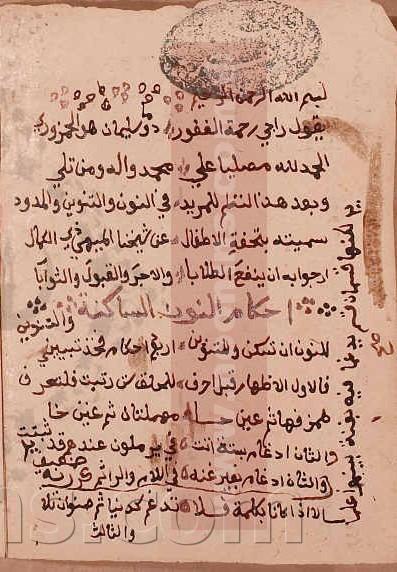 بسم الله الرحمن الرحيم
يقول راجي رحمة الغفور دوما سليمان هو الجمزوري
الحمد لله مصليا على محمد واله ومن تلى
وبعد هذا النظم للمريد في النون والتنوين والمدود
سميته بتحفة الاطفال عن شيخنا الميهي ذي الكمال
ارجوا به ان ينفع الطلابا والاجر والقبول والثوابا
احكام النون الساكنة
والتنوين
للنون ان تسكن وللتنوين اربع احكام فخذ تبييني
فالاول الاظهار قبل احرف للحلق رتبت فلتعرف
همز فهاء ثم عين حاء مهملتان ثم غين خا
والثان ادغام بستة اتت في يرملون عندهم قد ثبتت
والثان ادغام بغير غنه في اللام والرا ثم كررنه
الا اذا كانا بكلمة فلا تدغم كدنيا ثم صنوان تلا
والثالث
لكنها قسمان قسم يدغما فيه بغنة بينمو علما